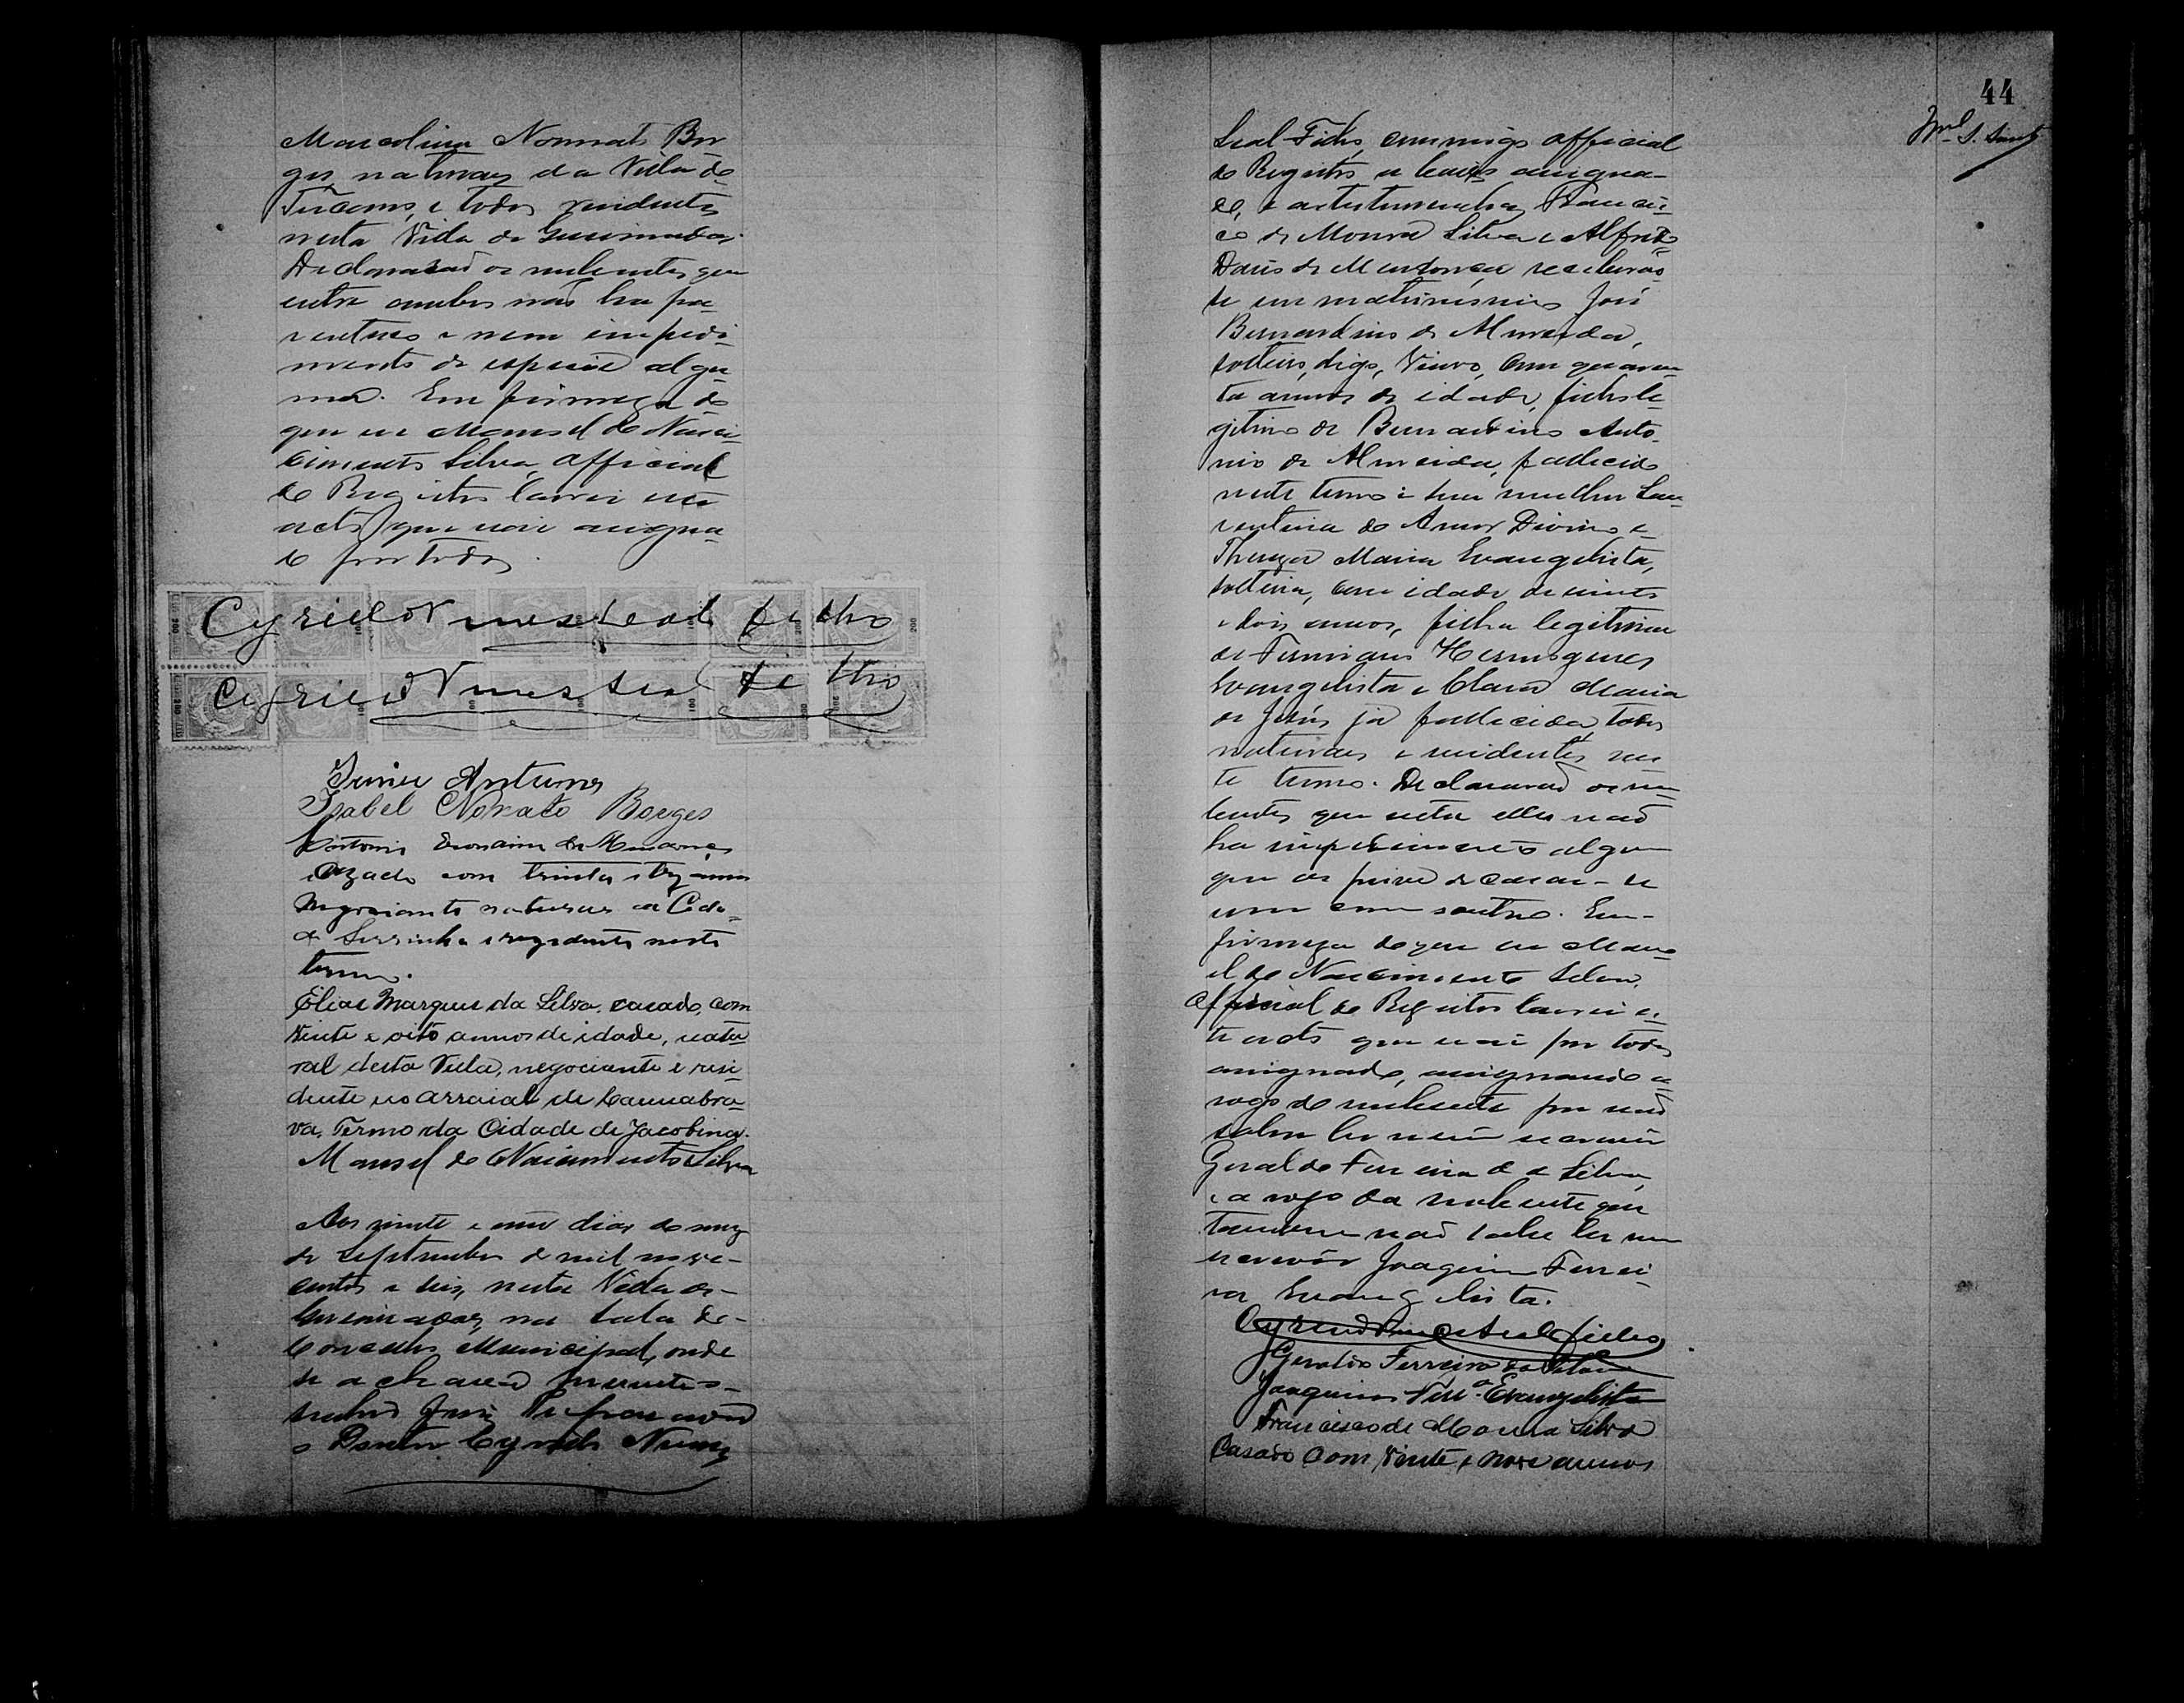 Marcolina Nonnato Bor
ges, naturaes da Villa de
Tucano, e todos residentes
nesta Villa de Queimadas.
Declararaõ os nubentes que
entre ambos não ha pa-
rentesco e nem impedi-
mento de especie algu-
ma. Em firmeza do
que eu Manoel do Nasci-
cimento Silva, official
do Registro lavrei este
acto que vai assigna-
do por todos.
Cyrillo Nunes Leal
Cyrillo Nunes Leal
Antunes
Isabel Nonato Borges
Antonio de
Cazado com trinta e trez annos
Negociante natural da Cida-
de Serrinha e rezidente neste
termo.
Elias Marques da Silva, casado, com
vinte e oito annos de idade, natu-
ral desta Villa, negociante e resi-
dente no arraial de Cannabra-
va, Termo da Cidade de Jacobina.
Manoel do Nascimento Silva
Aos vinte e um dias do mez
de Septembro de mil nove-
centos e seis, nesta Villa de
Queimadas, na sala do
Conselho Municipal, onde
se achavaõ presentes o
Juiz
o Doutor Cyrillo Nunes
44
Leal Fidho, commigo official
do Registro a baixo assigna-
do, e as testemunhas Francis-
co de Moura Silva e Alfredo
de Mendonça receberão
se em matrimonio José
Bernardino de Almeida,
solteiro, digo, Viuvo, com quaren-
ta annos de idade, filho le-
gitimo de Bernardino Anto-
nio de Almeida, fallecido
neste termo e sua mulher Lau-
rentina do Amor Divino e
Thereza Maria Evangelista,
solteira, com idade de vinte
e dois annos, filha legitima
de Firmiano Hermogenes
Evangelista e Clara Maria
de Jesús já fallecida, todos
naturaes e residentes nes-
te termo. Declararaõ os nu-
bentes que entre elles naõ
ha impedimento algum
que os prive de casar-se
um com o outro. Em
firmeza do que eu Mano-
el do Nascimento Silva,
Official do Registro lavrei es-
te acto que vai por todos
assignado, assignando a
rogo do nubente por naõ
saber ler nem escrever
Geraldo Ferreira da Silva,
e a rogo da nubente que
tambem naõ sabe ler nem
escrever Joaquim Ferrei-
ra Evangelista.
Geraldo Ferreira da Silva
Joaquim Ferrª Evangelista
Francisco de Moura Silva
Casado Com Vinte e nove annos